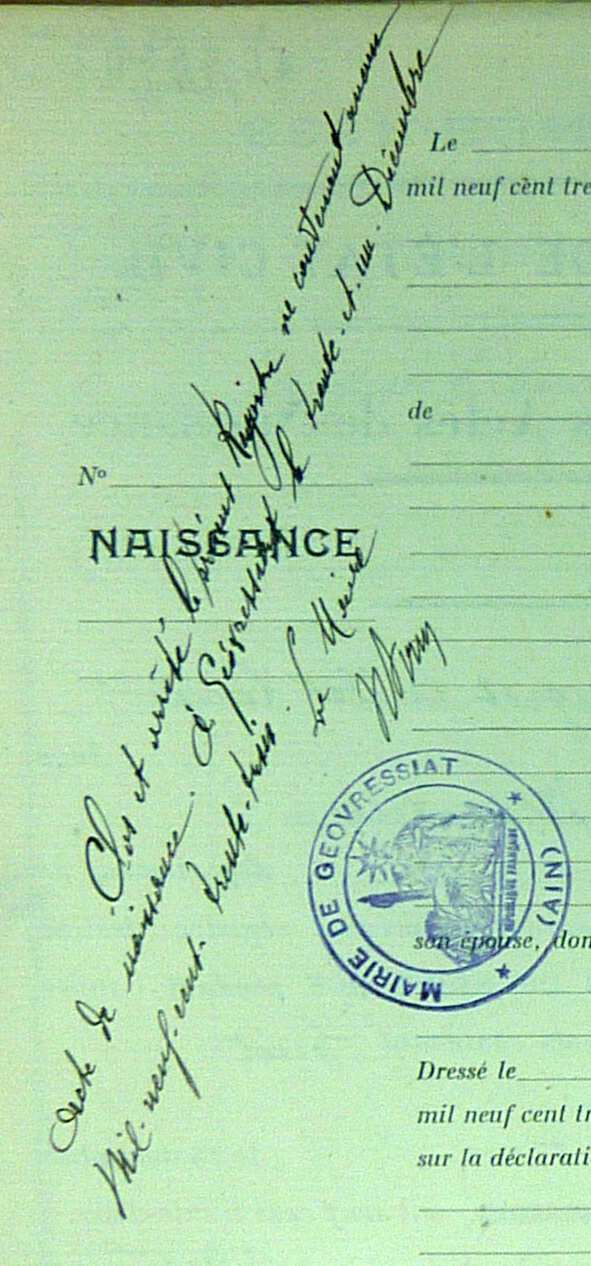 Clos et arrêté le présent Registre ne contenant aucun
acte de naissance. à Géovressiat le trente-et-un-Décembre
Mil-neuf-cent-trente-trois. Le Maire
Nº
NAISSANCE
MAIRIE DE GEOVRESSIAT
(AIN)
RÉPUBLIQUE FRANÇAISE
Le
mil neuf cent tre
de
son épouse, dom
Dressé le
mil neuf cent tr
sur la déclarati